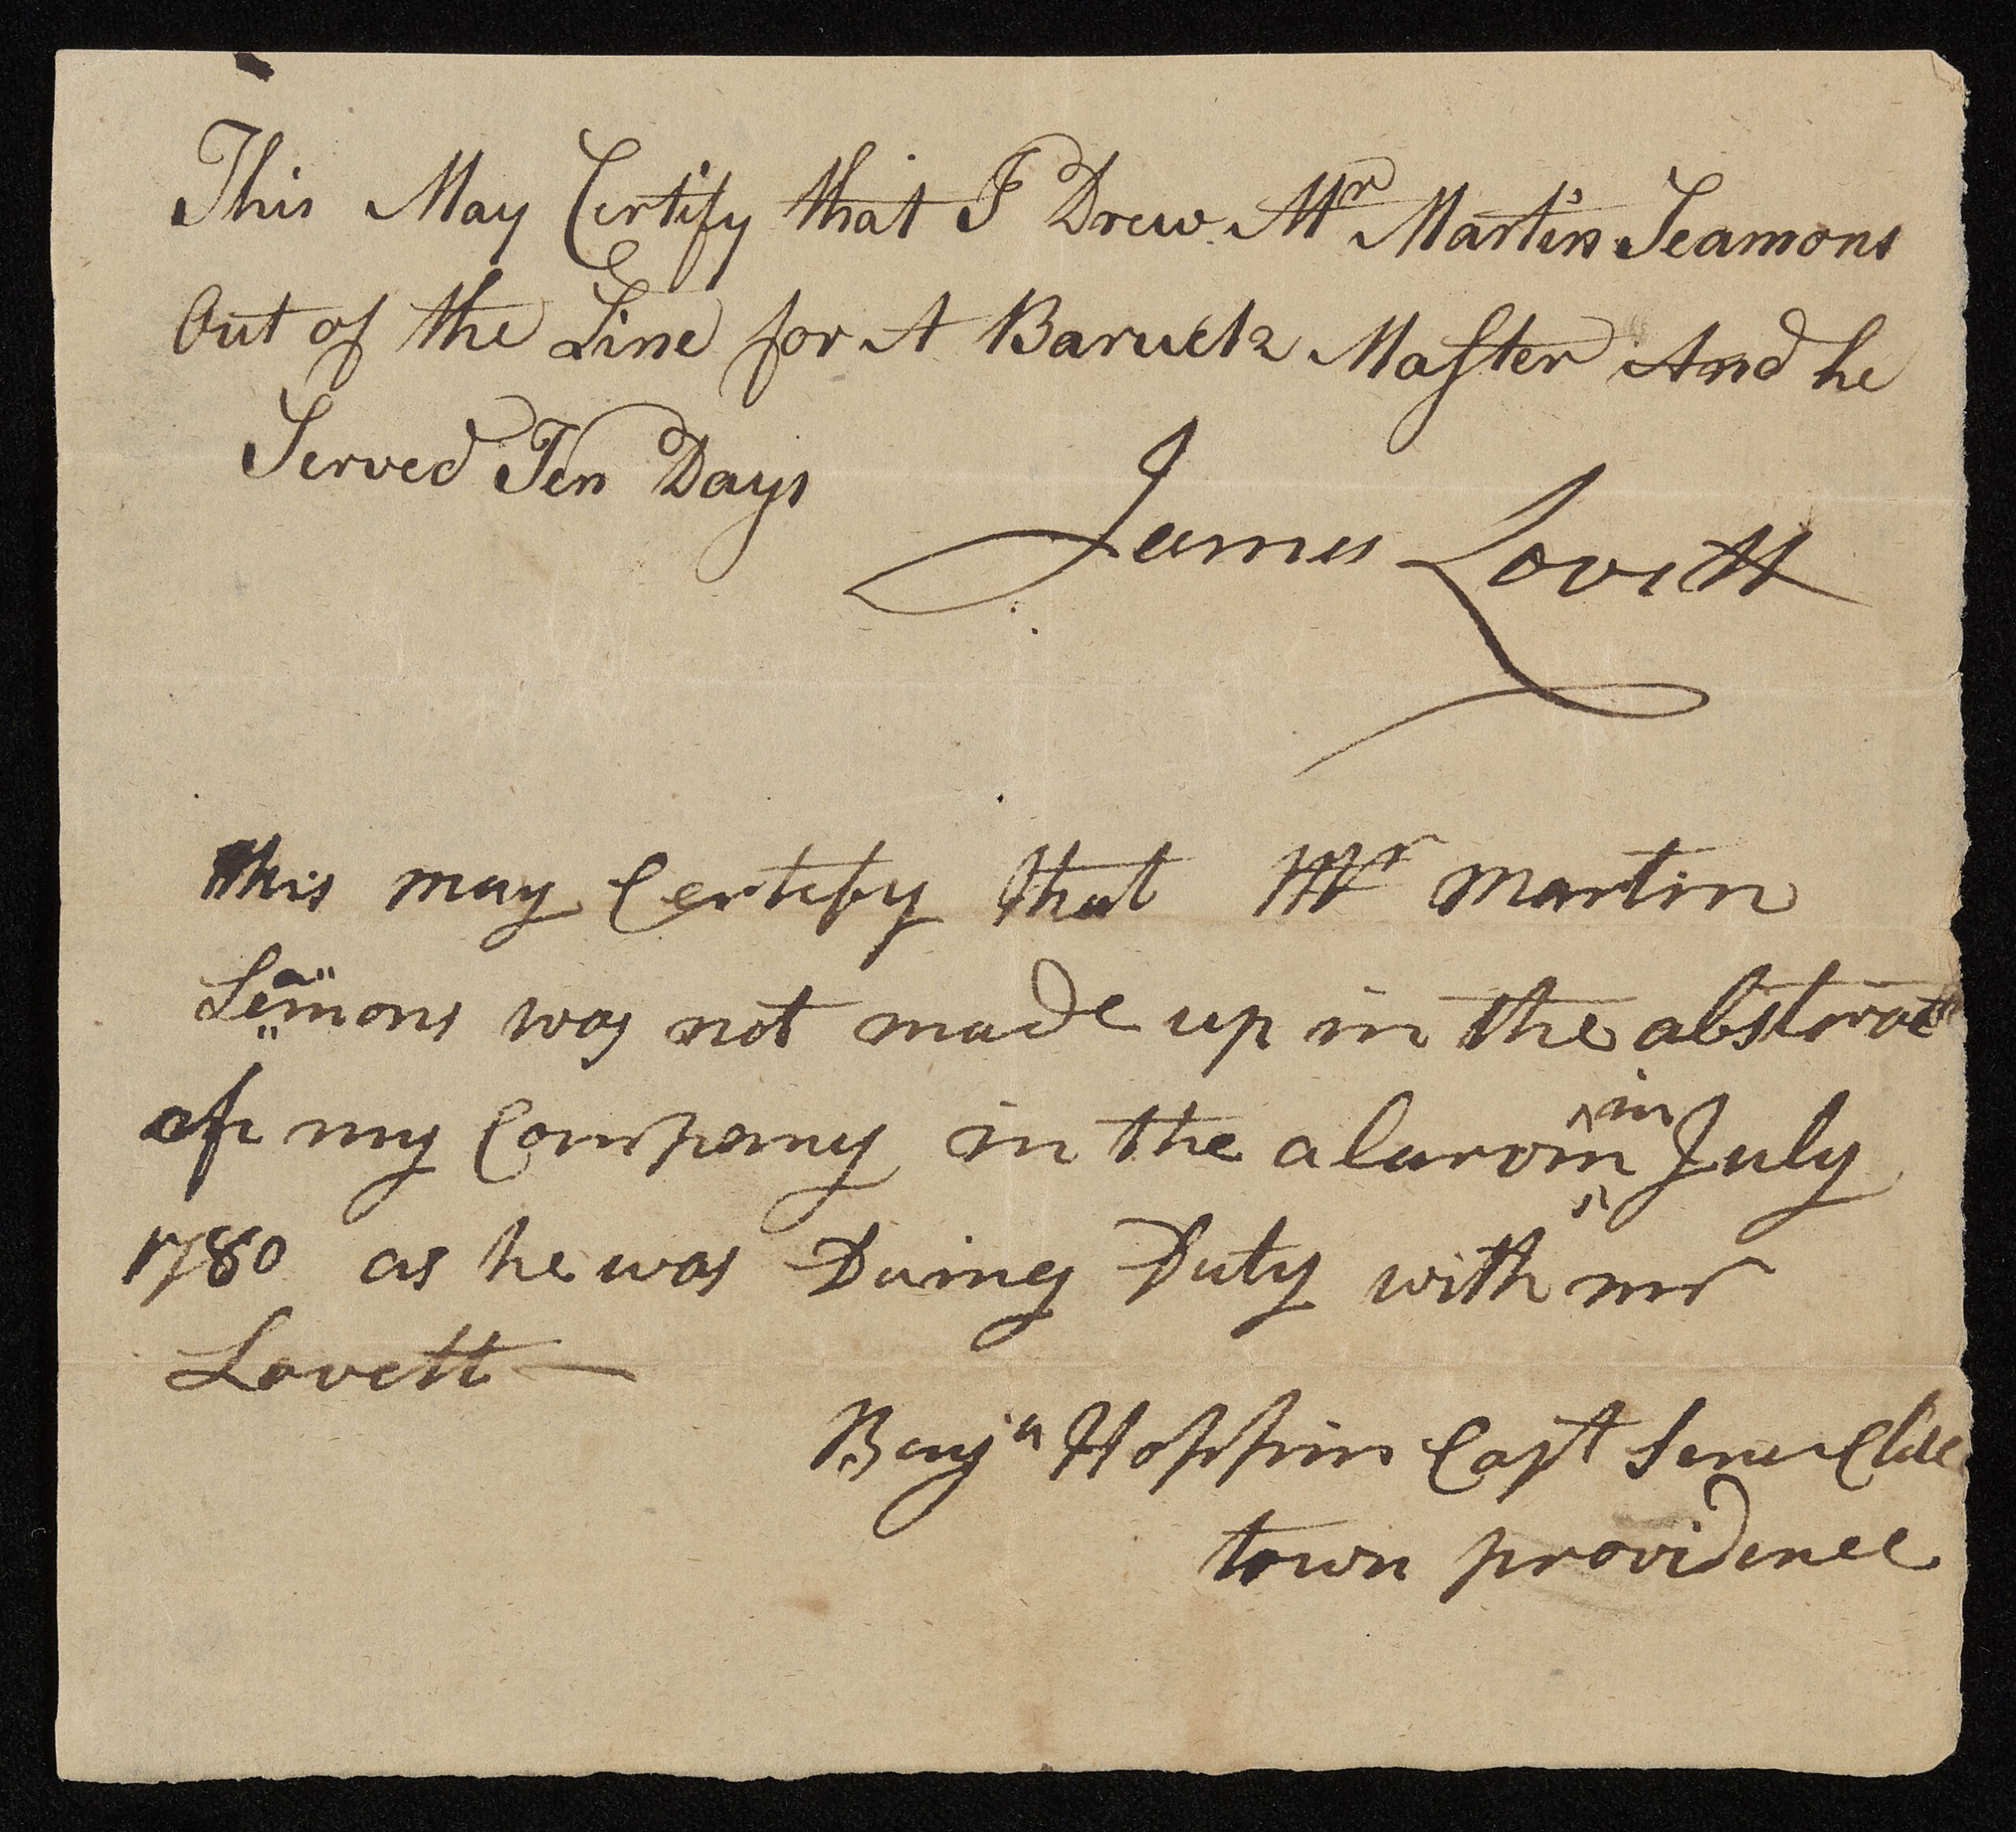 This May Certify that I Drew Mr Martin Seamons
Out of the Line for A Baruck Master And he
Served Ten Days
James Lovett
this may Certify that Mr martin
Seamons was not made up in the abstrat
of my Company in the alarm in July
1780 as he was Duing Duty with mr
Lovett —
Benja Hoppin Capt
town providence